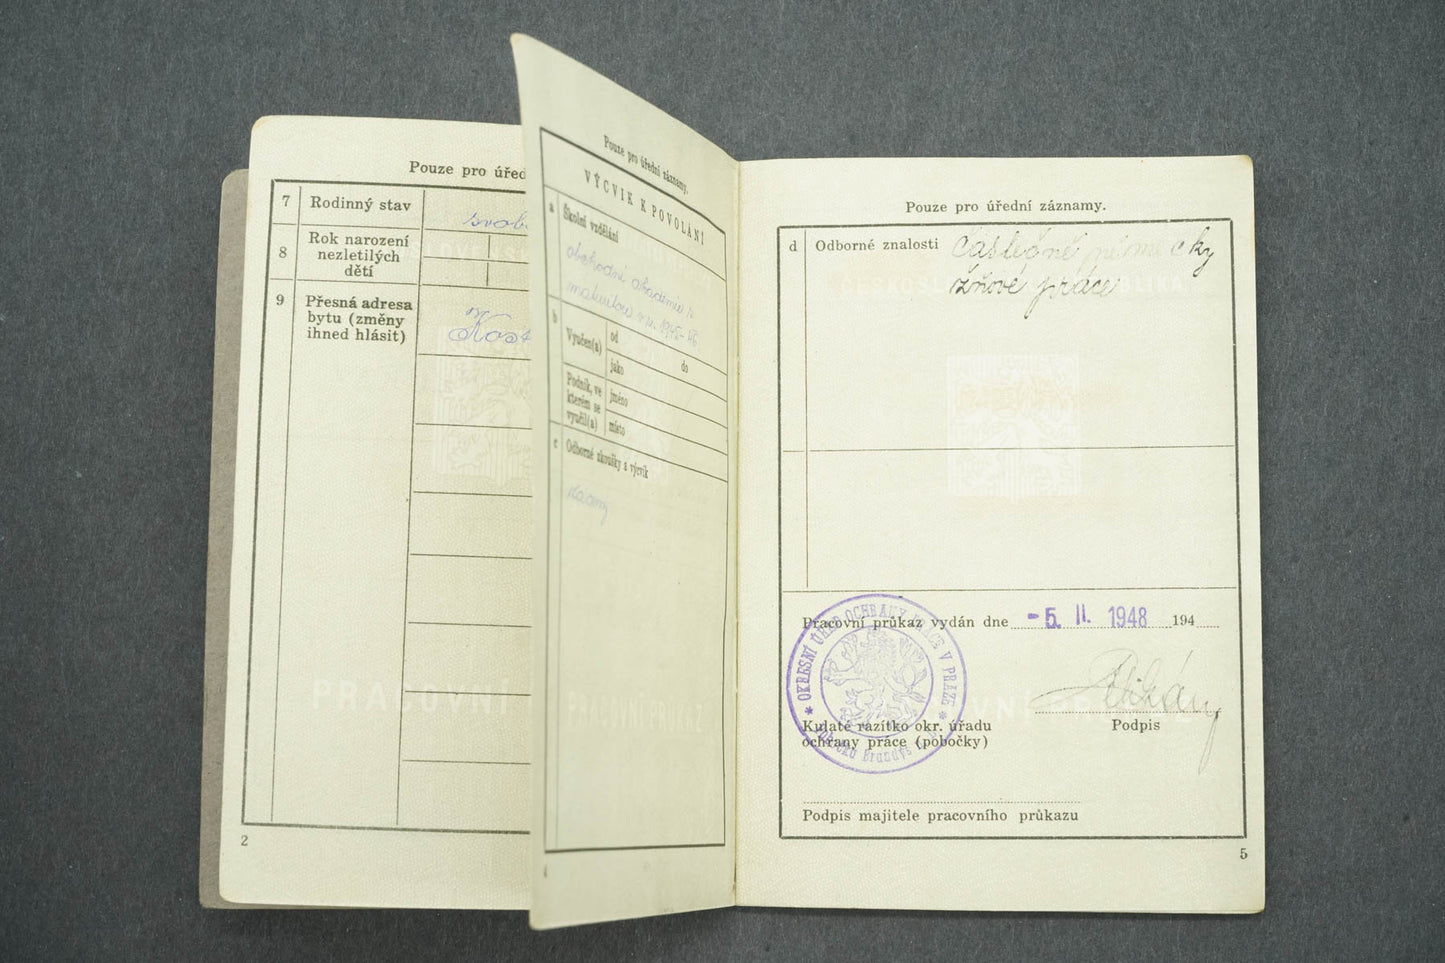 Pouze pro úřed
7 Rodinný stav
svobo
8 Rok narození
nezletilých
dětí
9 Přesná adresa
bytu (změny
ihned hlásit)
Kost
PRACOVNÍ
2
Pouze pro úřední záznamy.
VÝCVIK K POVOLÁNÍ
a Školní vzdělání
obchodní akademie
1945-46
b Vyučen(a) od do
jako
Podnik, ve
kterém se
vyučil(a)
jméno
místo
c Odborné zkoušky a výcvik
PRACOVNÍ PRŮKAZ
4
Pouze pro úřední záznamy.
d Odborné znalosti částečně německy
žňové práce
Pracovní průkaz vydán dne - 5. II. 1948 194
OKRESNÍ ÚŘAD OCHRANY PRÁCE V PRAZE
Kulaté razítko okr. úřadu
ochrany práce (pobočky)
Podpis
Podpis majitele pracovního průkazu
5